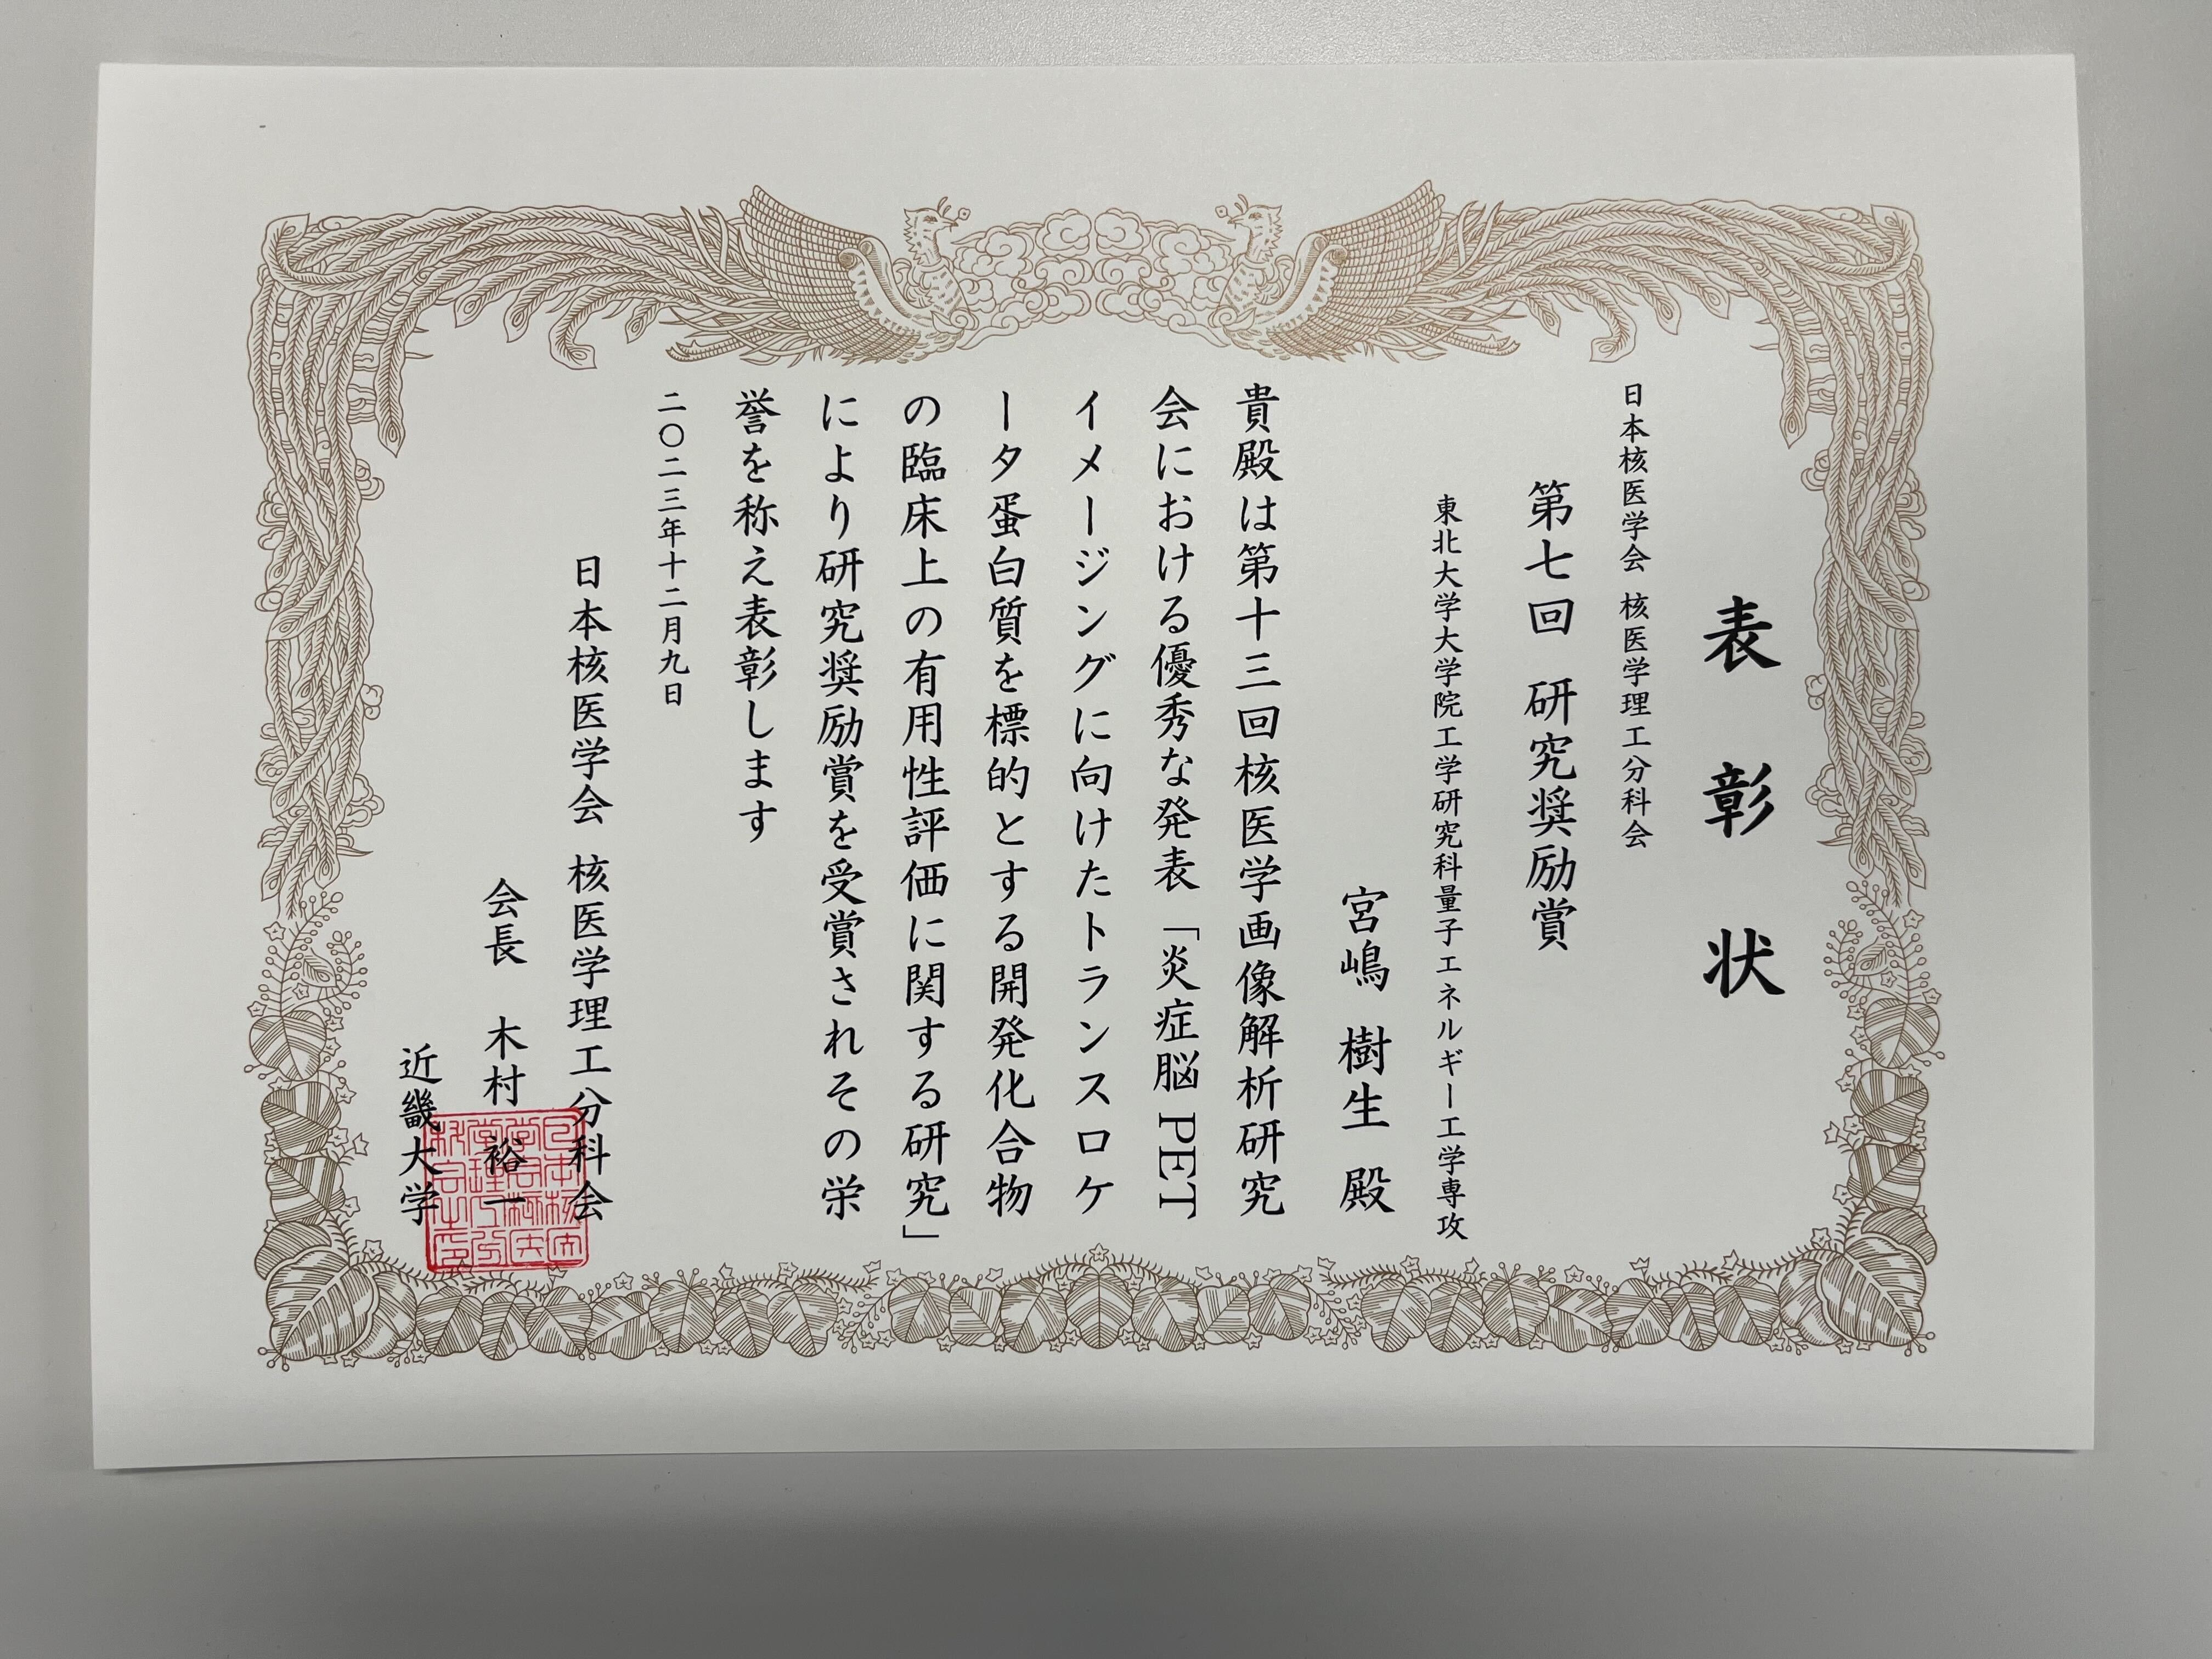 表彰状
日本核医学会 核医学理工分科会
第七回 研究奨励賞
東北大学大学院工学研究科量子エネルギー工学専攻
宮嶋 樹生 殿
貴殿は第十三回核医学画像解析研究
会における優秀な発表「炎症脳PET
イメージングに向けたトランスロケ
ータ蛋白質を標的とする開発化合物
の臨床上の有用性評価に関する研究」
により研究奨励賞を受賞されその栄
誉を称え表彰します
二〇二三年十二月九日
日本核医学会 核医学理工分科会
会長 木村 裕一
近畿大学